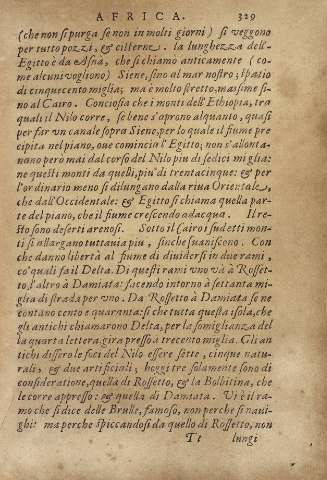 AFRICA. 329
(che non si purga se non in molti giorni) si veggono
per tutto pozzi, & cisterne. la lunghezza dell'-
Egitto è da Asna, che si chiamò anticamente (co-
me alcuni vogliono) Siene, sino al mar nostro; spatio
di cinquecento miglia; ma è molto stretto, massime si-
no al Cairo. Conciosia che i monti dell'Ethiopia, tra
quali il Nilo corre, se bene s'oprono alquanto, quasi
per far vn canale sopra Siene, per lo quale il fiume pre
cipita nel piano, oue comincia l'Egitto; non s'allonta-
nano però mai dal corso del Nilo piu di sedici miglia:
ne questi monti da quelli, piu' di trentacinque: & per
l'ordinario meno si dilungano dalla riua Orientale,
che dall'Occidentale: & Egitto si chiama quella par-
te del piano, che il fiume crescendo adacqua. Il re-
sto sono deserti arenosi. Sotto il Cairo i sudetti mon-
ti si allargano tuttauia piu, sinche suaniscono. Con
che danno libertà al fiume di diuidersi in due rami,
co' quali fa il Delta. Di questi rami vno và à Rosset-
to, l'altro à Damiata: facendo intorno à settanta mi-
glia di strada per vno. Da Rosetto à Damiata se ne
contano cento e quaranta: si che tutta questa isola, che
gli antichi chiamarono Delta, per la somiglianza del
la quarta lettera, gira presso à trecento miglia. Gli an
tichi dissero le foci del Nilo essere sette, cinque natu-
rali, & due artificiali; hoggi tre solamente sono di
consideratione, quella di Rossetto, & la Bolbitina, che
le corre appresso: & quella di Damiata. Vi è il ra-
mo che si dice delle Brulle, famoso, non perche si naui-
ghi: ma perche spiccandosi da quello di Rossetto, non
Tt lungi